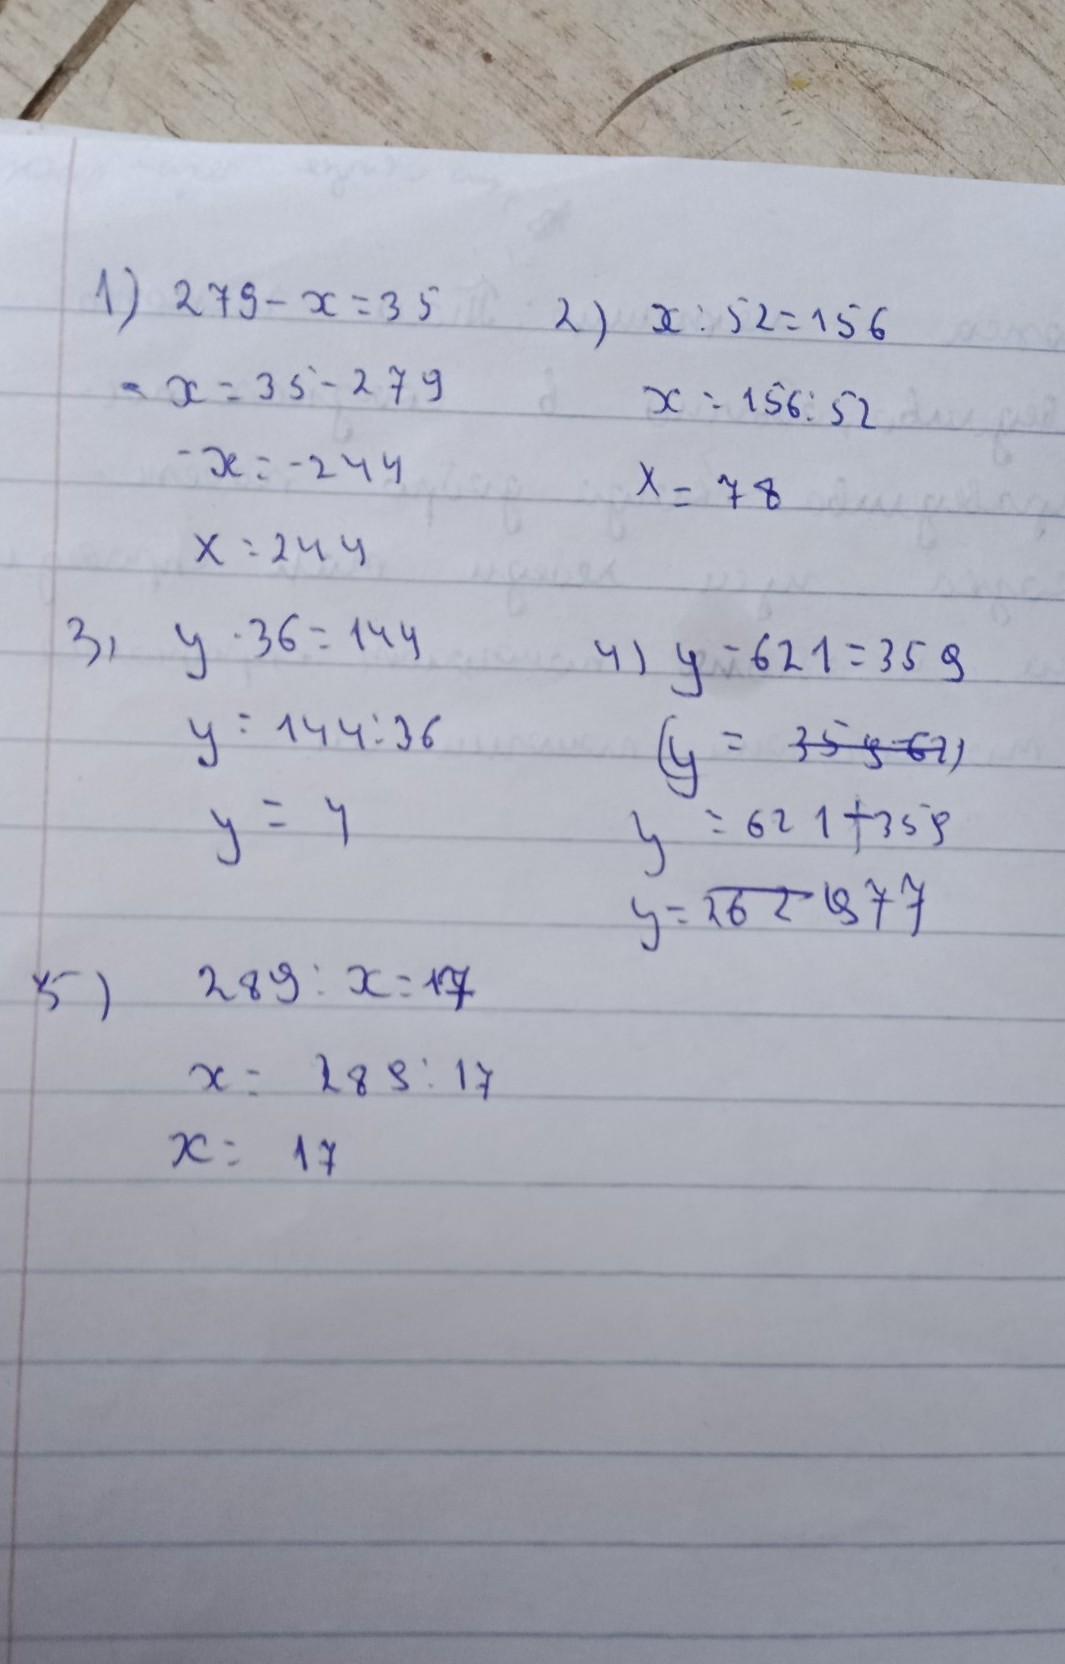 1) 279 - x = 35
- x = 35 - 279
- x = -244
x = 244
2) x : 52 = 156
x = 156 : 52
x = 78
3) y · 36 = 144
y = 144 : 36
y = 4
4) y - 621 = 359
(y = 359-621)
y = 621 + 359
y = 262 977
5) 289 : x = 17
x = 289 : 17
x = 17